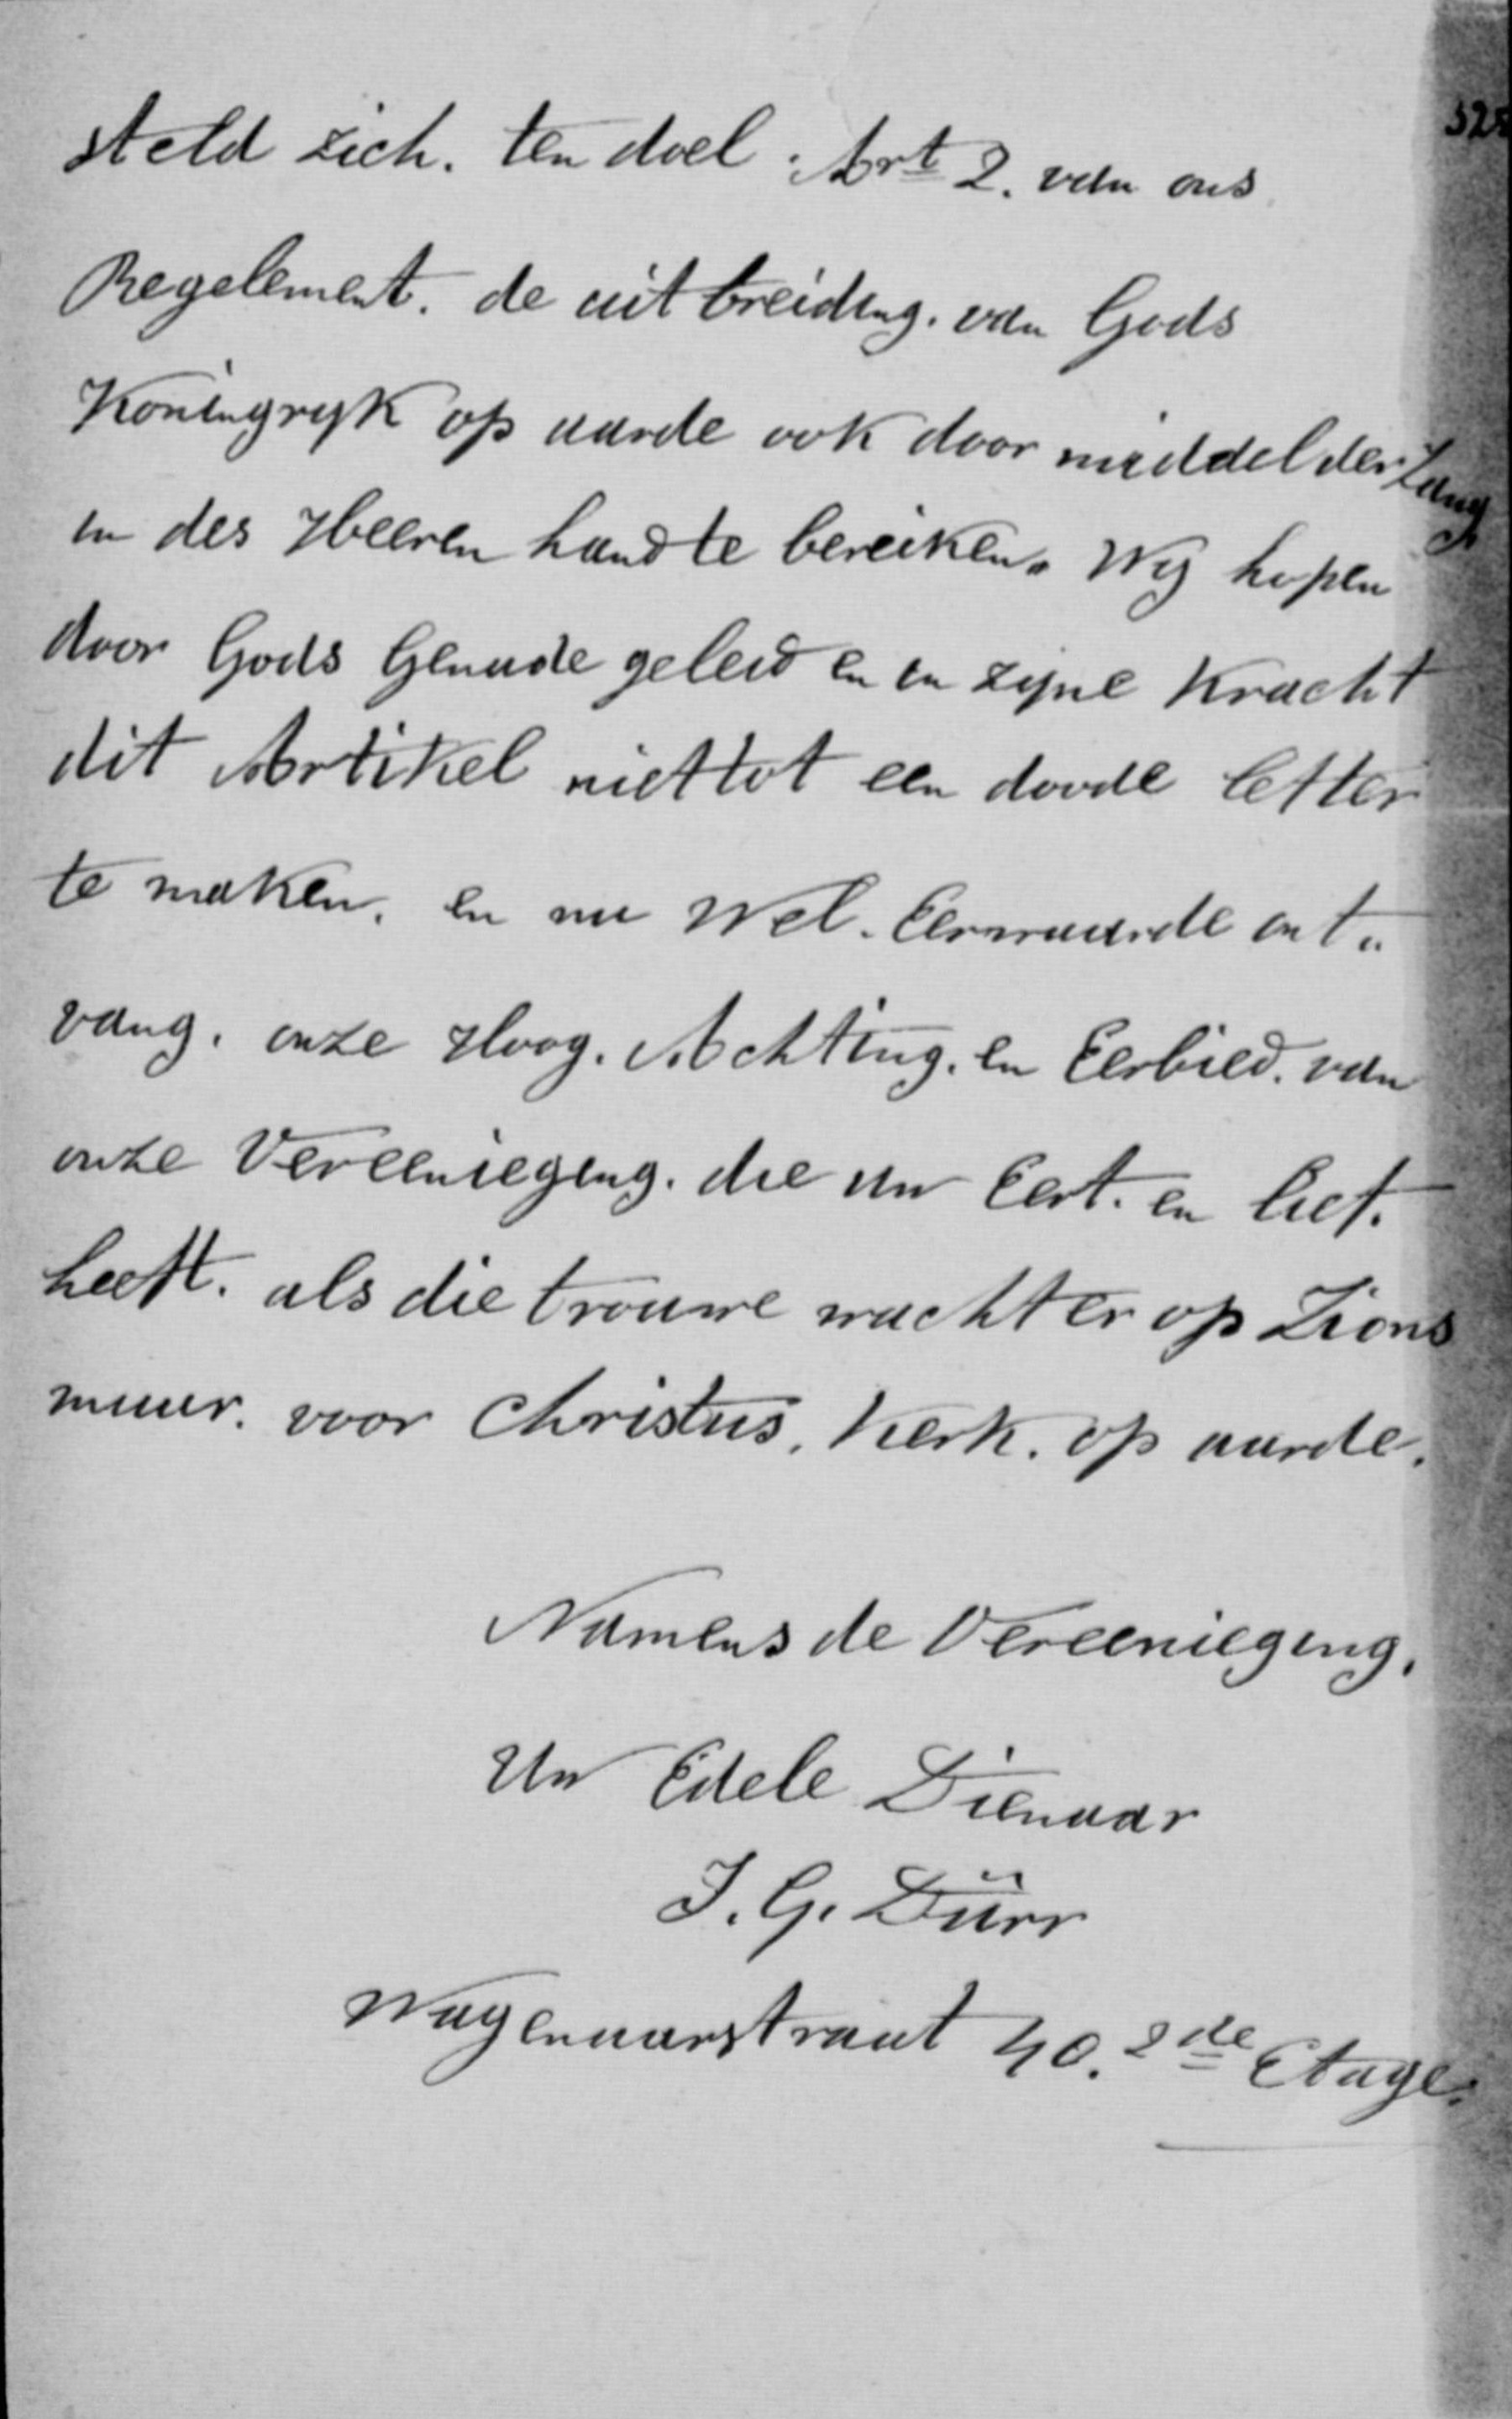 steld zich. ten doel. Art 2. van ons
Regelement. de uitbreiding. van Gods
Koningryk op aarde ook door middel der Zang
in des Heeren hand te bereiken. Wij hopen
door Gods Genade geleid en in zijne Kracht
dit Artikel niet tot een doode letter
te maken. en nu Wel. Eerwaarde ont„
vang. onze Hoog. Achting. en Eerbied. van
onze Vereenieging. die uw Eert. en lief.
heeft. als die trouwe wachter op Zions
muur. voor Christus. Kerk. op aarde.
Namens de Vereenieging.
Uw Edele Dienaar
J. G. Dürr
Wagenaarstraat 40. 2de Etage.